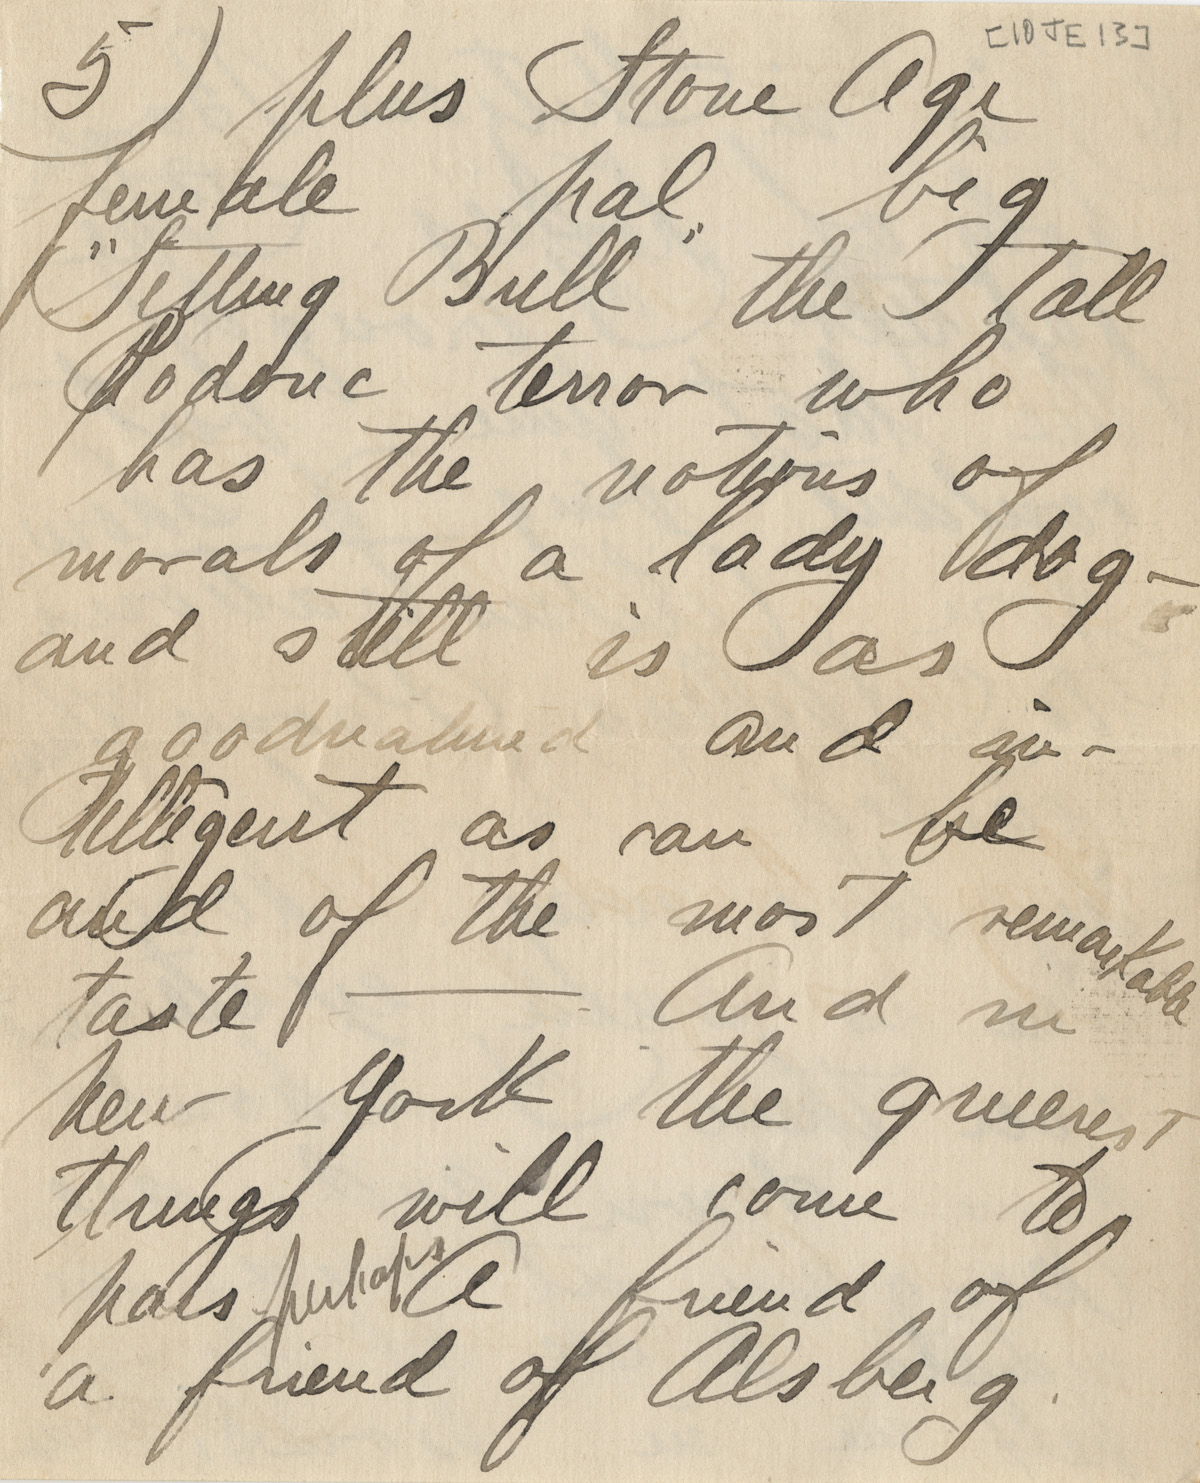 [10 JE 13]
5) plus Stone Age
female pal, big
"Sitting Bull" the tall
terror who
has the notions of
morals of a lady dog -
and still is as
goodnatured and in-
telligent as can be
and of the most remarkable
taste — And in
New York the queerest
things will come to
pass perhaps A friend of
a friend of Alsberg.